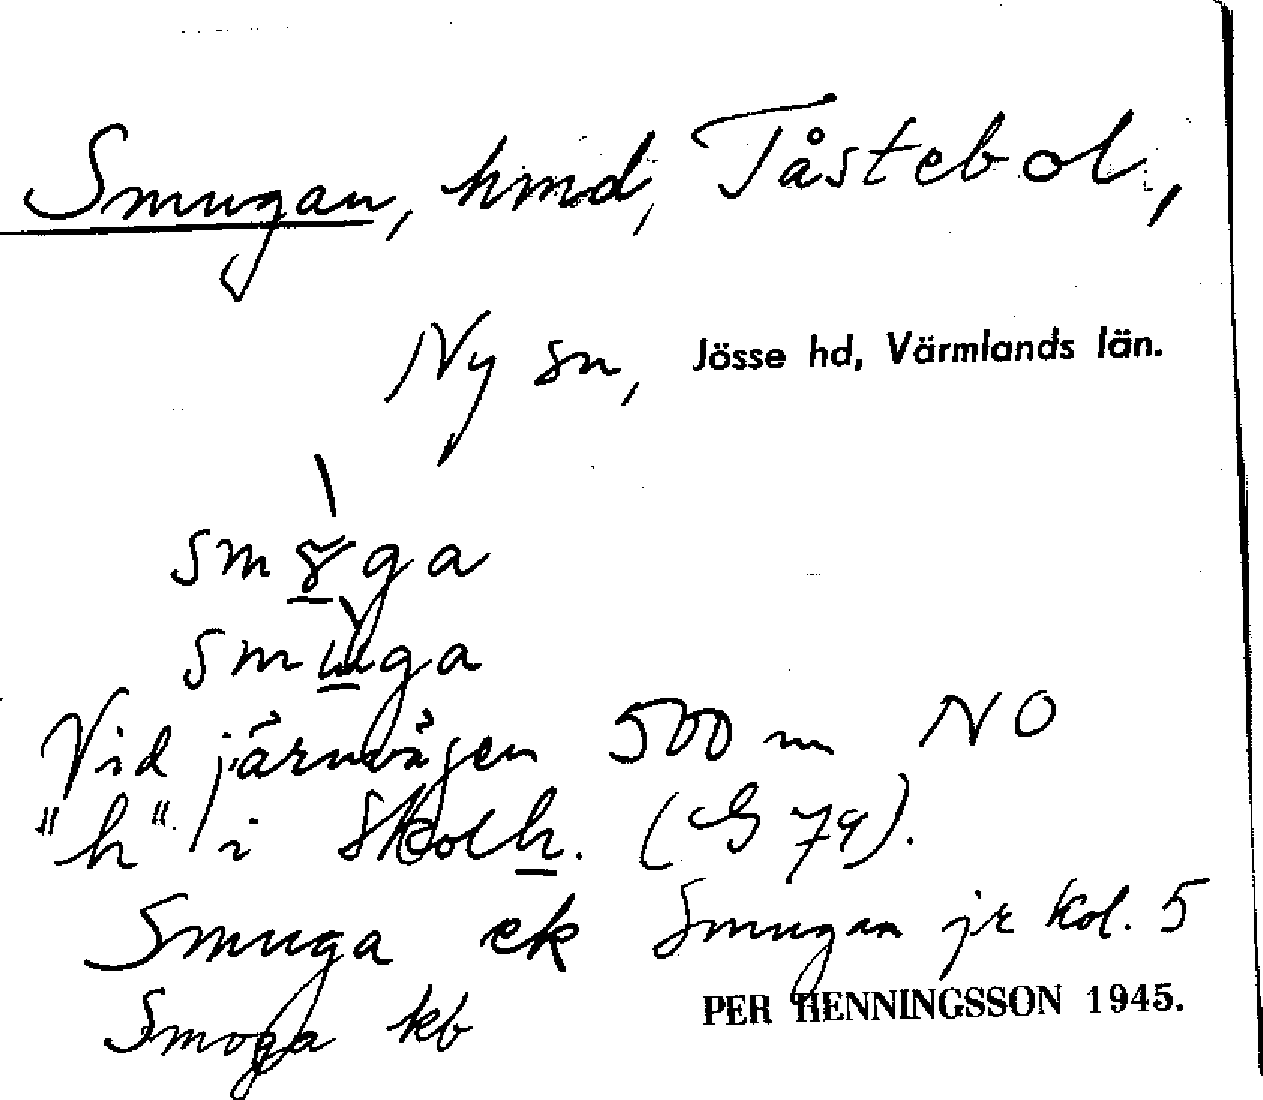 Smugan, hmd, Tåstebol,
Ny sn, Jösse hd, Värmlands län.
smɤ̲̀ga
smù̲ga
Vid järnvägen 500 m NO
"h" i Skolh. (G 79).
Smuga ek Smugan jr kol. 5
Smoga kb
PER HENNINGSSON 1945.